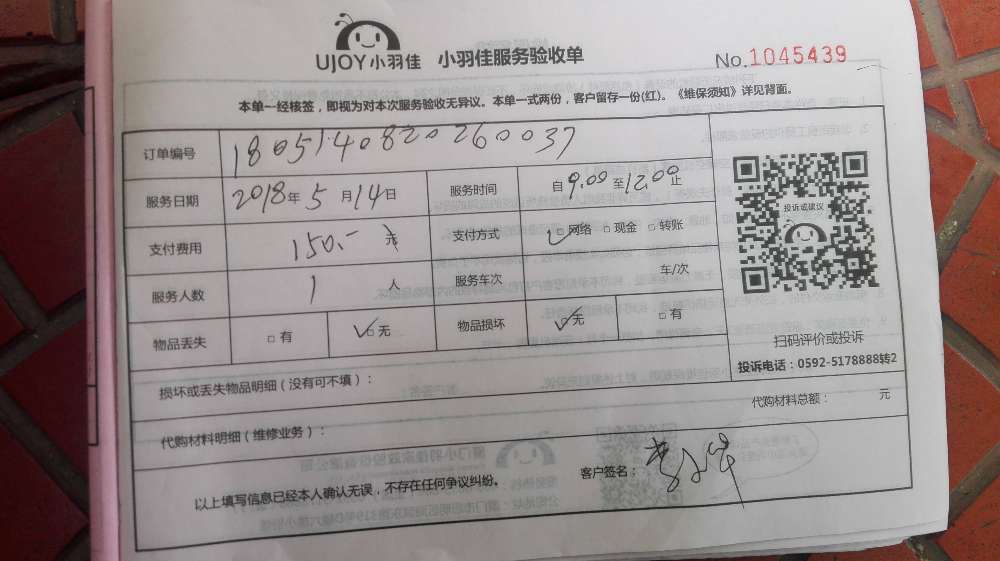 UJOY小羽佳 小羽佳服务验收单 No.1045439
本单一经核签，即视为对本次服务验收无异议。本单一式两份，客户留存一份(红)。《维保须知》详见背面。
订单编号 1805140820260037
服务日期 2018年5月14日 服务时间 自9.00至12.00止
支付费用 150.- 元 支付方式 □网络 □现金 □转账
投诉或建议
服务人数 1 人 服务车次 车/次
物品丢失 □有 □无 物品损坏 □无 □有
扫码评价或投诉
投诉电话：0592-5178888转2
损坏或丢失物品明细（没有可不填）：
代购材料明细（维修业务）： 代购材料总额： 元
以上填写信息已经本人确认无误，不存在任何争议纠纷。 客户签名：